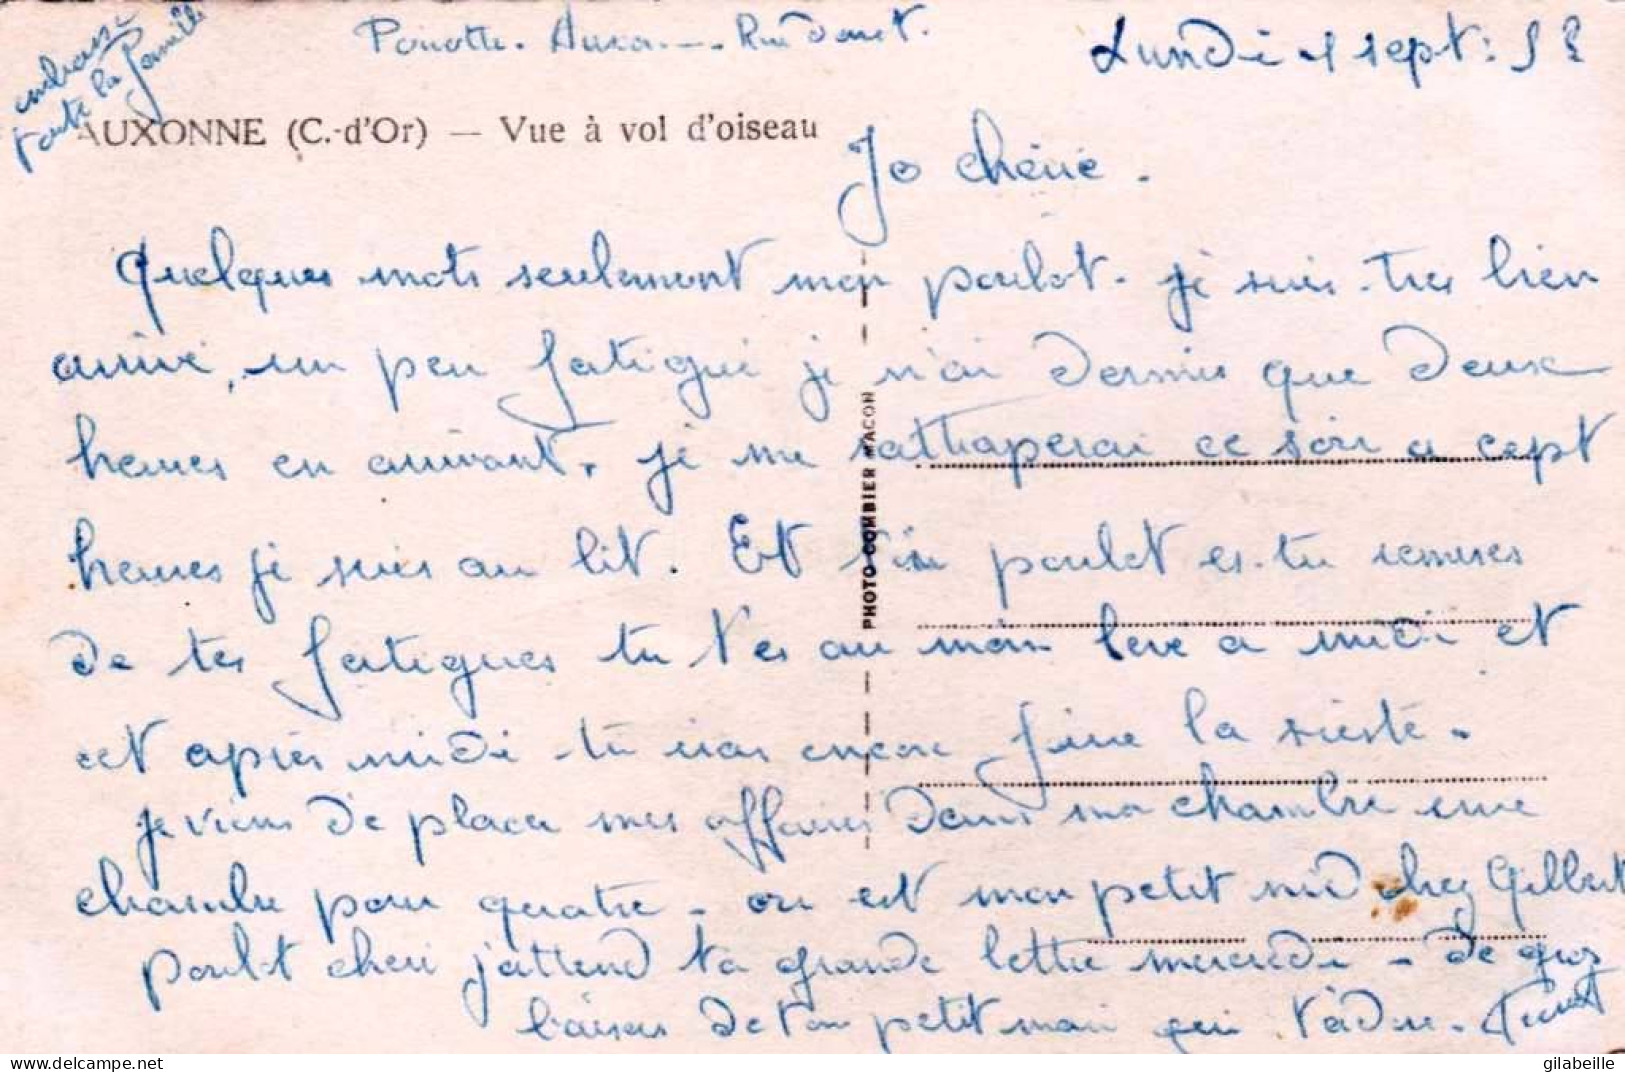 embrasse
toute la famille
Lundi 1 sept: 58
AUXONNE (C.-d'Or) — Vue à vol d'oiseau
Jo chérie.
Quelques mots seulement mon poulot. je suis très bien
arrivé, un peu fatigué je n'ai dormis que deux
heures en arrivant. je me rathraperai ce soir a cept
heures je suis au lit. Et toi poulot es-tu remises
de tes fatigues tu t'es au moin levé a midi et
cet après midi tu iras encore faire la sieste.
je viens de placer mes affaires dans ma chambre une
chambre pour quatre. ou est mon petit nid chez Gilbert
poulot cheri j'attend ta grande lettre mercredi - de gros
baisers de ton petit mari qui t'adore.
PHOTO COMBIER MACON
gilabeille